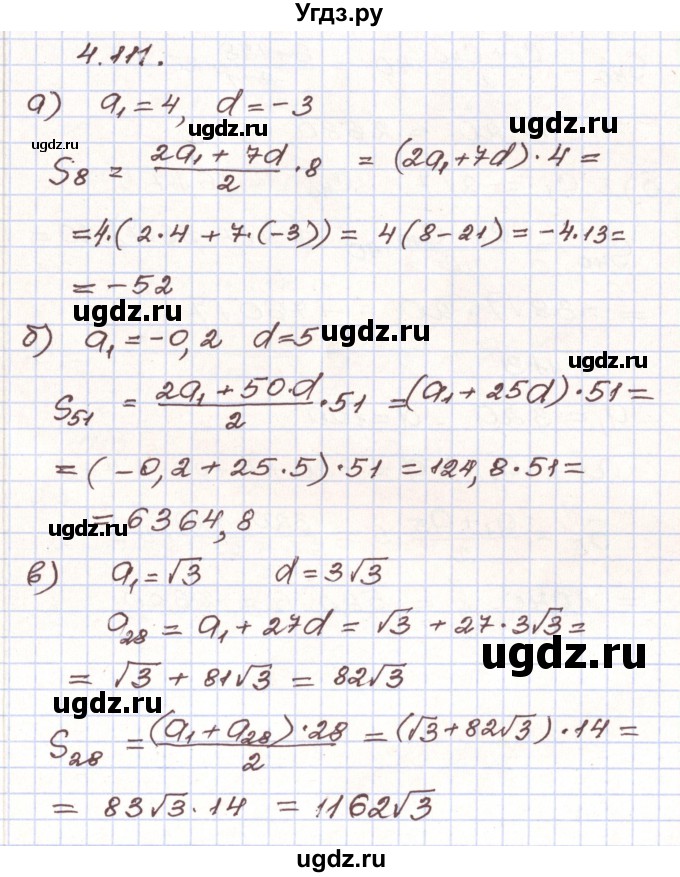 Угдз.ру
4.111.
а) a₁ = 4, d = -3
ugdz.ru
ugdz.ru
ugdz.ru
S₈ = (2a₁ + 7d)/2 · 8 = (2a₁ + 7d) · 4 =
= 4·(2·4 + 7·(-3)) = 4(8-21) = -4·13 =
= -52
ugdz.ru
ugdz.ru
б) a₁ = -0,2 d = 5
ugdz.ru
S₅₁ = (2a₁ + 50·d)/2 · 51 = (a₁ + 25d) · 51 =
= (-0,2 + 25·5) · 51 = 124,8 · 51 =
ugdz.ru
= 6364,8
в) a₁ = √3 d = 3√3
a₂₈ = a₁ + 27d = √3 + 27·3√3 =
ugdz.ru
= √3 + 81√3 = 82√3
ugdz.ru
S₂₈ = (a₁ + a₂₈)·28/2 = (√3 + 82√3) · 14 =
= 83√3 · 14 = 1162√3
ugdz.ru
ugdz.ru